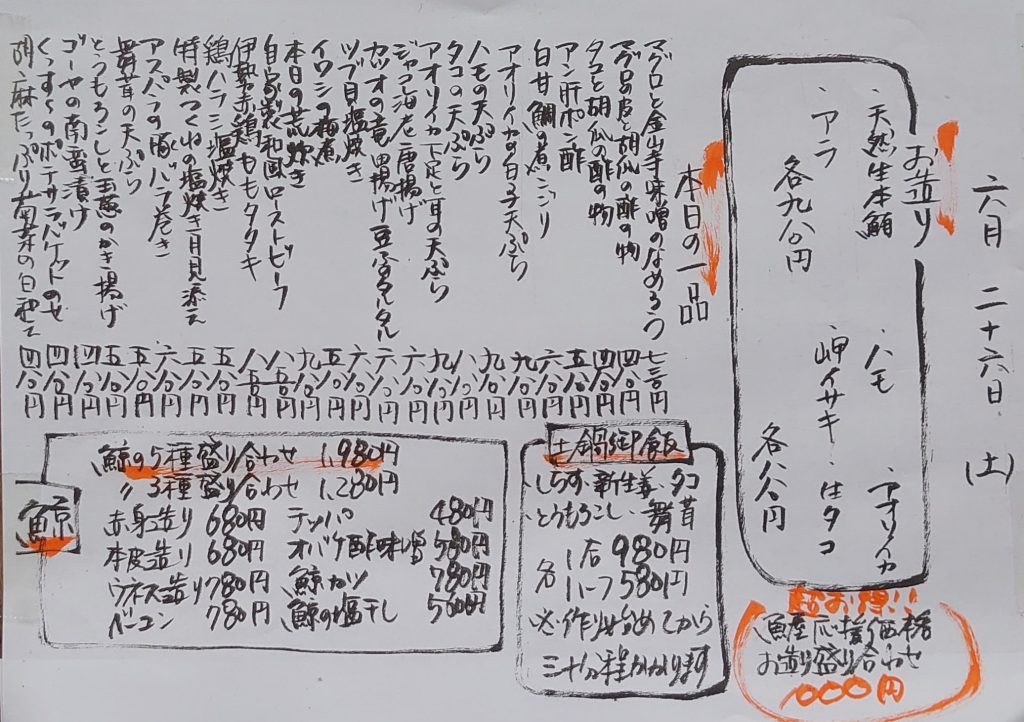 六月 二十六日(土)
お造り
・天然生本鮪 ・ハモ ・アオリイカ
・アラ ・岬イサキ ・生タコ
各九八〇円 各八八〇円
超お得!!
魚屋応援価格
お造り盛り合わせ
1000円
本日の一品
マグロと金山寺味噌のなめろう 七三〇円
マグロの皮と胡瓜の酢の物 四八〇円
タコと胡瓜の酢の物 四八〇円
アン肝ポン酢 五八〇円
白甘鯛の煮こごり 六八〇円
アオリイカの白子天ぷら 九八〇円
ハモの天ぷら 九八〇円
タコの天ぷら 八八〇円
アオリイカ下足と耳の天ぷら 九八〇円
ジャコ海老唐揚げ 六八〇円
カツオの竜田揚げ豆ふタルタル 六八〇円
ツブ貝塩焼き 六八〇円
イワシの梅煮 五八〇円
本日の荒炊き 九八〇円
自家製和風ローストビーフ 八八〇円
伊勢赤鶏ももタタキ 八五〇円
鶏ハラミ塩焼き 五八〇円
特製つくねの塩焼き月見添え 五八〇円
アスパラの豚バラ巻き 六八〇円
舞茸の天ぷら 五八〇円
とうもろこしと玉葱のかき揚げ 五八〇円
ゴーヤの南蛮漬け 四八〇円
くんせいのポテサラバケットのせ 四八〇円
胡麻たっぷり 四八〇円
土鍋御飯
しらす・新生姜・タコ
とうもろこし・舞茸
各 1合 980円
ハーフ 580円
※作り始めてから
三十分程かかります
鯨
鯨の5種盛り合わせ 1,980円
〃3種盛り合わせ 1,280円
赤身造り 680円 テッパ 480円
本皮造り 680円 オバケ酢味噌 580円
ウネス造り 780円 鯨カツ 780円
ベーコン 780円 鯨の塩干し 500円